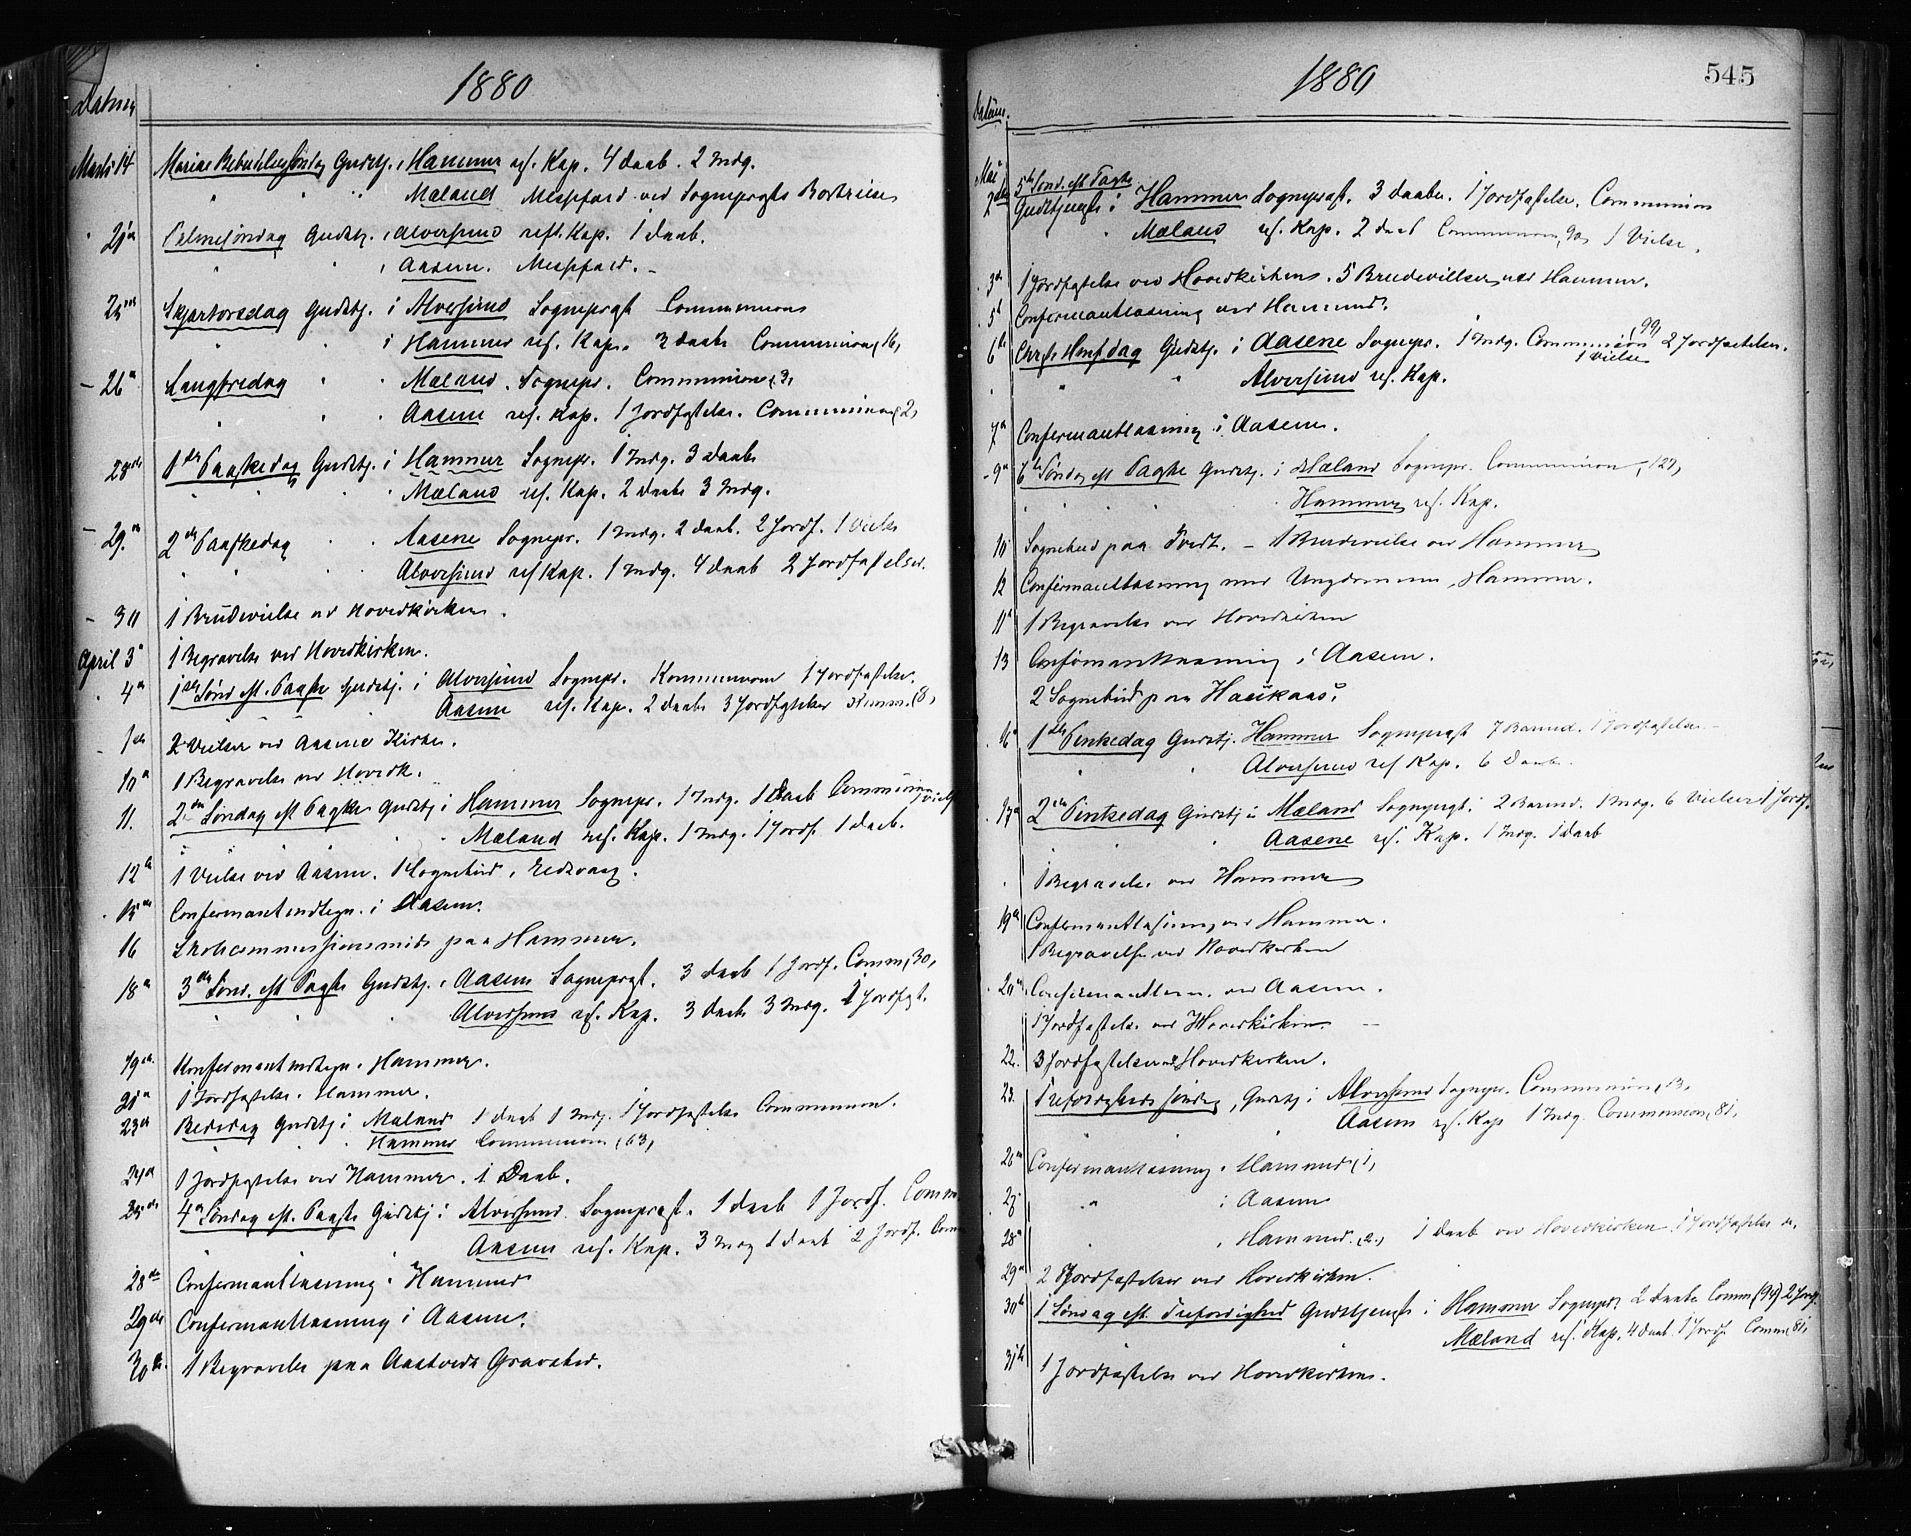 1880
Datum
Marts 14 Mariæ Bebudelsessöndag Gudstj. i Hammer res. Kap. 4 Daab. 2 Indg.
" " " Mæland Messefald ved Sogneprests Bortreise
21de Palmesöndag Gudstj. i Alversund res. Kap. 1 Daab.
" " i Aasene. Messefald. –
25de Skjærtorsdag Gudstj. i Alversund Sogneprest Communion
i Hammer res. Kap. 3 Daab Communion (16)
– 26de Langfredag " " Mæland. Sognepr. Communion (3)
" " " Aasene res. Kap. 1 Jordfæstelse. Communion (2)
28de 1ste Paaskedag Gudstj. i Hammer Sognepr. 1 Indg. 3 Daab
" " " Mæland res. Kap. 2 Daab 3 Indg.
– 29de 2den Paaskedag " " Aasene Sognepr. 1 Indg. 2 Daab. 2 Jordf. 1 Vielse
" " " Alversund res Kap. 1 Indg. 4 Daab 2 Jordfæstelser.
– 30 1 Brudevielse ved Hovedkirken.
April 3de 1 Begravelse ved Hovedkirken.
4de 1ste Sönd. eft. Paaske Gudstj. i Alversund Sognepr. Kommunion 1 Jordfæstelse.
Aasene res. Kap. 2 Daab 3 Jordfæstelser Komm. (8)
2 Vielser ved Aasene Kirke.
10de 1 Begravelse ved Hovedk.
11. 2den Söndag eft Paaske Gudstj i Hammer Sognepr. 1 Indg. 1 Daab Communion 1 Vielse
Mæland res. Kap. 1 Indg. 1 Jordf. 1 Daab.
12te 1 Vielse ved Aasene. 1 Sognebud i Eidsvaag.
15de Confermantindtegn. i Aasene.
16 Skolecommissionsmöde paa Hammer.
18de 3die Sönd. eft Paaske Gudstj. i Aasene Sogneprest. 3 Daab 1 Jordf. Comm (30)
" " " Alversund res. Kap. 3 Daab 3 Indg. 1 Jordfæst.
19de Konfermantindtegn. i Hammer.
21de 1 Jordfæstelse i Hammer.
23de Bededag Gudstj i Mæland 1 Daab 1 Indg. 1 Jordfæstelse Communion.
" " Hammer Communion (63)
24de 1 Jordfæstelse ved Hammer. 1 Daab.
25de 4de Söndag eft. Paaske Gudstj i Alversund Sogneprest. 1 Daab 1 Jordf. Comm
" " " Aasene res. Kap. 3 Indg 1 Daab 2 Jordf. Com
28de Confermantlæsning i Hammer
29de Confermantlæsning i Aasene.
30te 1 Begravelse paa Aastveds Gravsted.
1880
545
Datum.
Mai 5te Sönd. eft Paaske
2den Gudstjeneste i Hammer Sogneprest. 3 Daabe. 1 Jordfæstelse. Communion
" Mæland res. Kap. 2 Daab Communion (90) 1 Vielse.
3de 1 Jordfæstelse ved Hovedkirken. 5 Brudevielser ved Hammer.
5t Confermantlæsning ved Hammer.
6te Christi Hmf. dag Gudstj. i Aasene Sognepr. 1 Indg. Communion (99) 2 Jordfæstelser.
1 Vielse
" " " Alversund res. Kap.
7de Confermantlæsning i Aasene.
9de 6te Söndag eft Paaske Gudstj. i Mæland Sognepr. Communion (127)
" " " Hammer res. Kap.
10 Sognebud paa Tvedt. – 1 Brudevielse ved Hammer
12 Confermantlæsning med Ungdommen i Hammer.
11te 1 Begravelse ved Hovedkirken
13 Confirmantlæsning i Aasene.
2 Sognebud paa Haukaas.
16de 1ste Pintsedag Gudstj. Hammer Sogneprest 7 Barned. 1 Jordfæstelse –
" Alversund res Kap. 6 Daab
17de 2den Pintsedag Gudstj i Mæland Sogneprest 2 Barned. 1 Indg. 6 Vielser 1 Jordf.
" Aasene res. Kap. 1 Indg. 1 Daab
1 Begravelse ved Hammer
19de Confermantlæsning ved Hammer.
1 Begravelse ved Hovedkirken
20de Confermantlæsn. ved Aasene.
1 Jordfæstelse ved Hovedkirken. –
22. 3 Jordfæstelser ved Hovedkirken.
23. Trefoldigheds söndag, Gudstj i Alversund Sognepr. Communion (13)
Aasene res. Kap 1 Indg. Communion (81)
26de Confermantlæsning i Hammer (1)
27. " i Aasene
28de " i Hammer. (2) 1 Daab ved Hovedkirken 1 Jordfæstelse do.
29de 2 Jordfæstelser ved Hovedkirken.
30te 1 Söndag eft. Trefoldighed Gudstjeneste i Hammer Sognepr. 2 Daab Comm (99) 2 Jordf.
Mæland res. Kap. 4 Daab 1 Jordf. Comm (81)
31te 1 Jordfæstelse ved Hovedkirken.